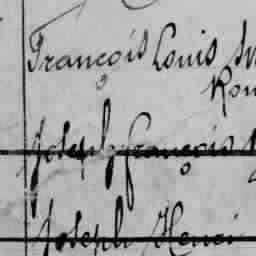 François Louis
Joseph françois
Joseph Henri